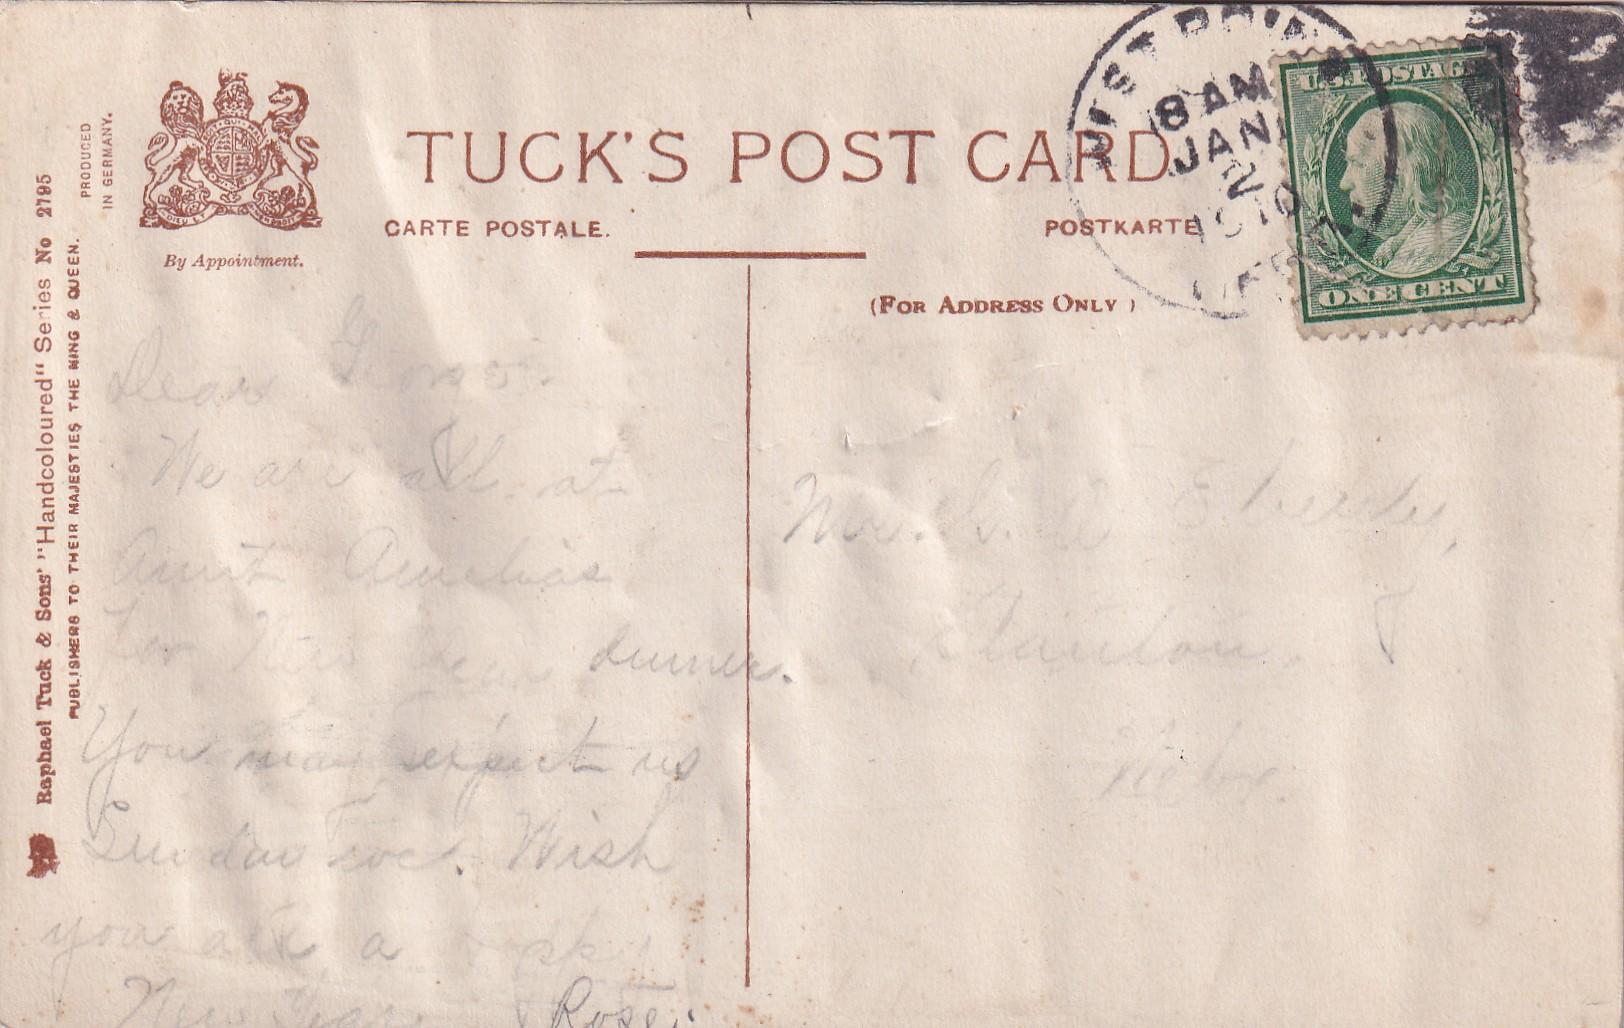 TUCK'S POST CARD
CARTE POSTALE.
POSTKARTE
By Appointment.
(FOR ADDRESS ONLY)
Raphael Tuck & Sons' "Handcoloured" Series No 2795
PUBLISHERS TO THEIR MAJESTIES THE KING & QUEEN.
PRODUCED
IN GERMANY.
8 AM
JAN
2
1910
NEBR.
U.S. POSTAGE
ONE CENT
Dear George.
We are all at
Aunt Amelias
for New Year dinner.
You may expect us
Sunday eve. Wish
you all a
New Year Rose.
Mr. G. A.
Stanton,
Nebr.